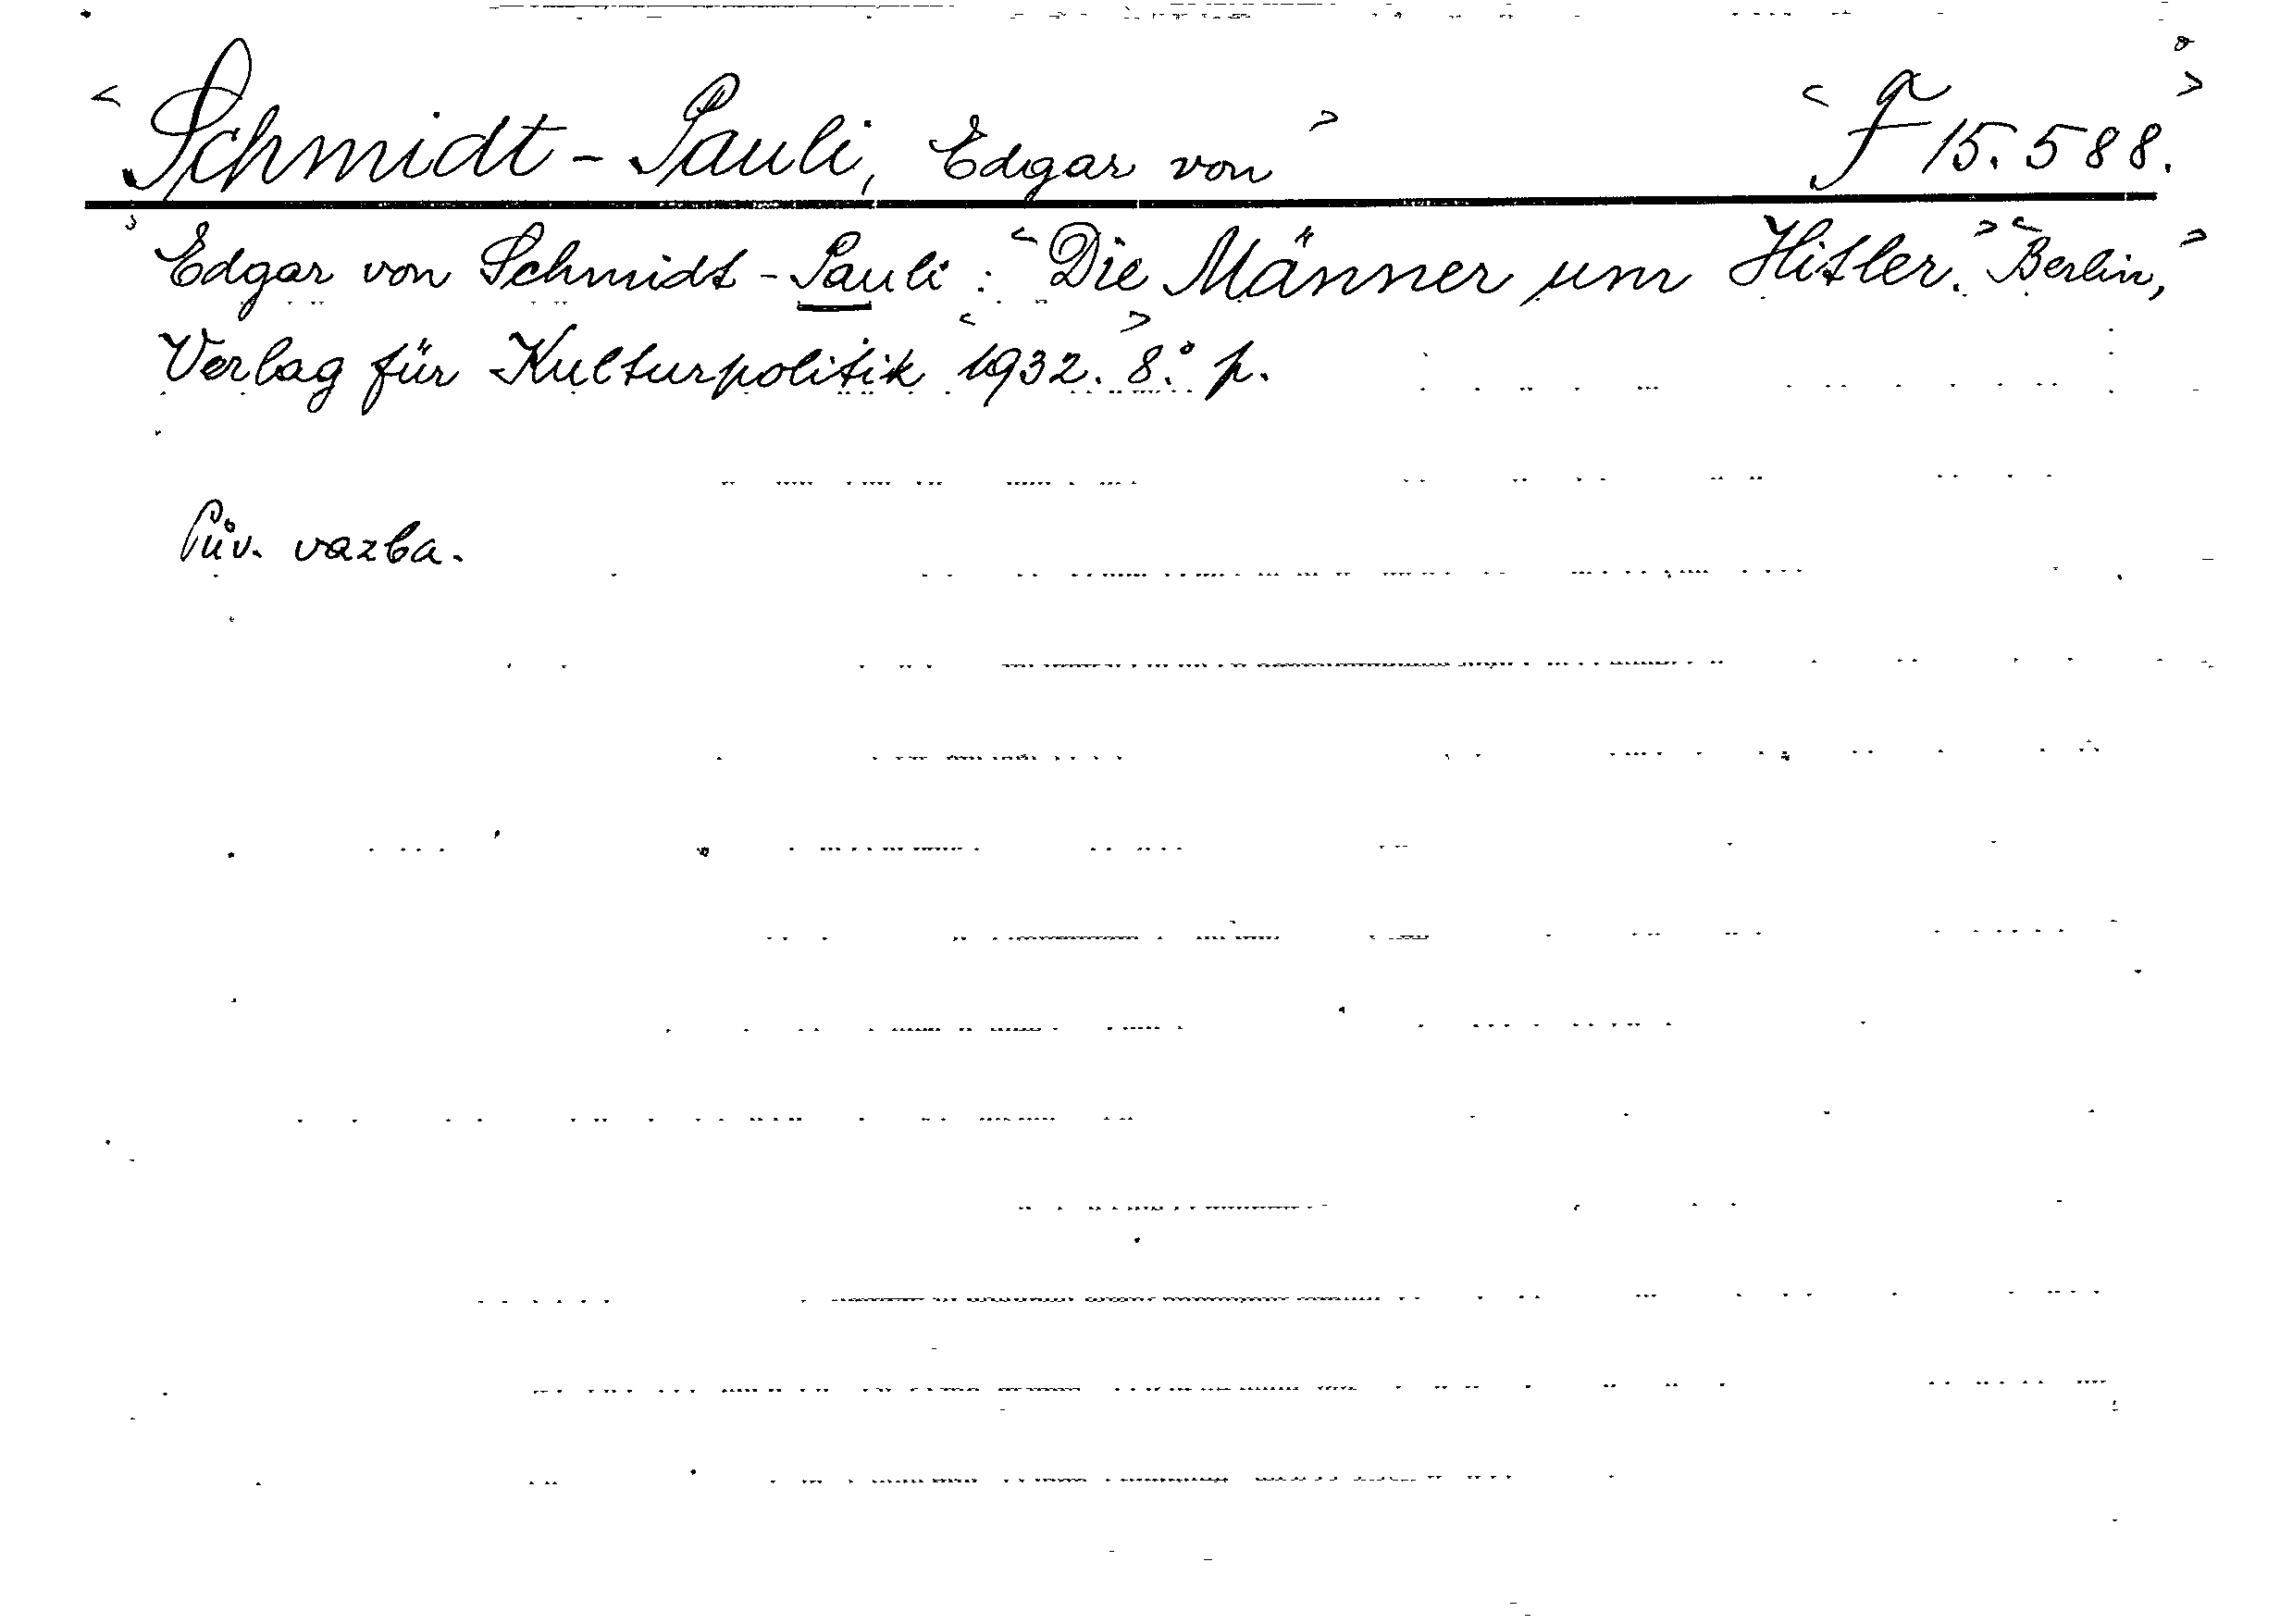 < Schmidt-Pauli, Edgar von > < F 15.588. >
Edgar von Schmidt-Pauli: < Die Männer um Hitler. > < Berlin, >
Verlag für Kulturpolitik < 1932. > 8.° p.
Pův. vazba.